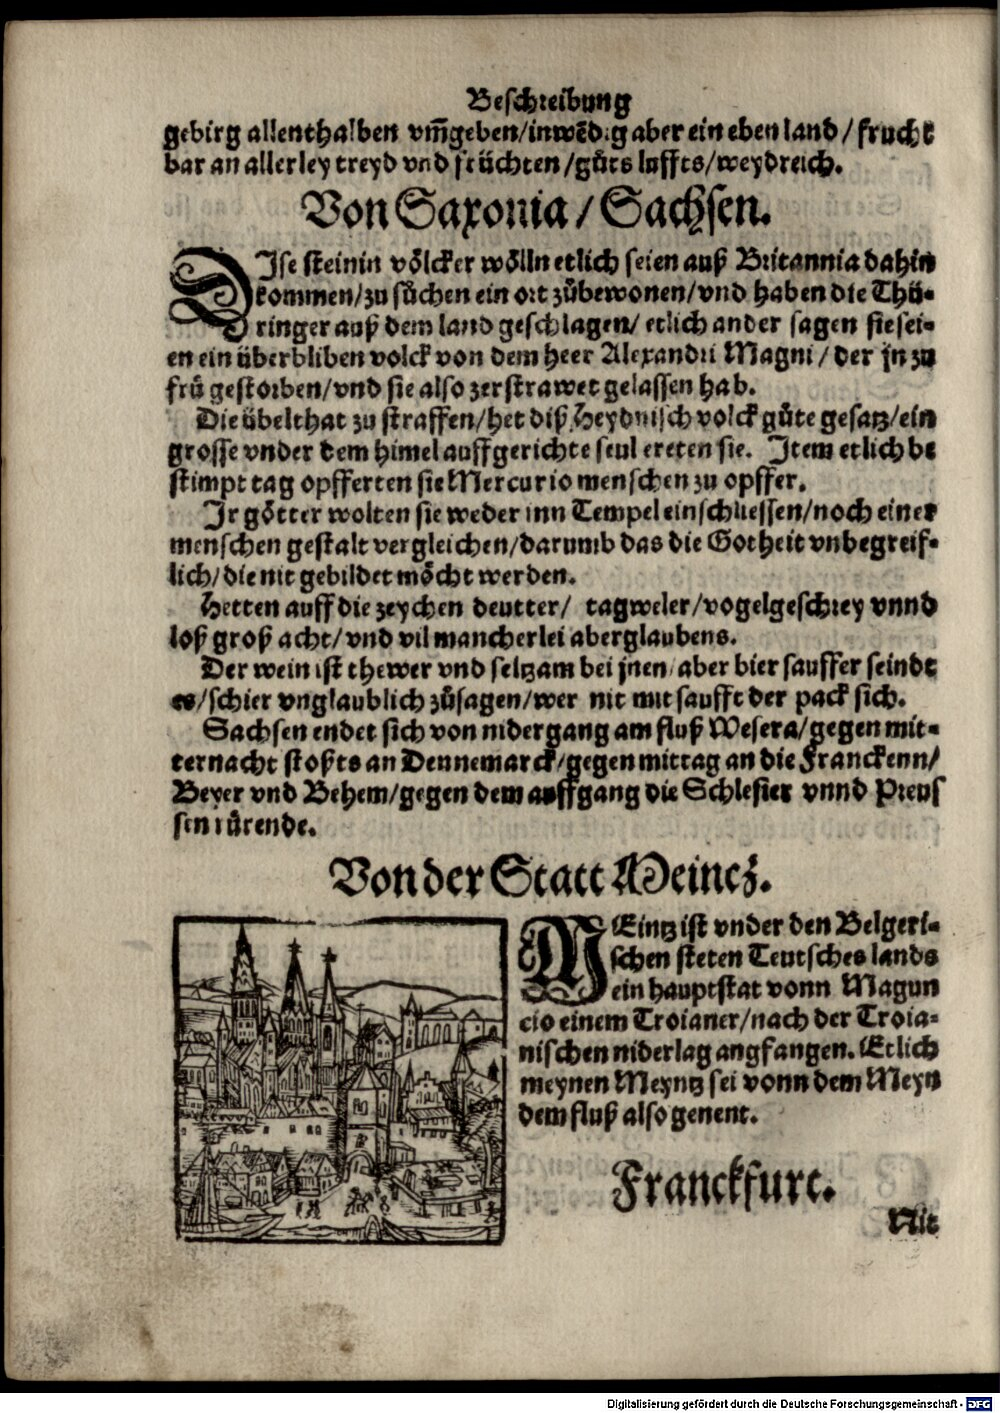 Beschreibung
gebirg allenthalben vm̃geben/inwẽdig aber ein eben land/frucht
bar an allerley treyd vnd früchten/gůts luffts/weydreich.
Von Saxonia/Sachsen.
DIse steinin völcker wölln etlich seien auß Britannia dahin
kommen/zu sůchen ein ort zůbewonen/vnd haben die Thü-
ringer auß dem land geschlagen/ etlich ander sagen sie sei-
en ein überbliben volck von dem heer Alexandri Magni/der jn zu
frů gestorben/vnd sie also zerstrawet gelassen hab.
Die übelthat zu straffen/het diß Heydnisch volck gůte gesatz/ein
grosse vnder dem himel auffgerichte seul ereten sie. Item etlich be
stimpt tag opfferten sie Mercurio menschen zu opffer.
Ir götter wolten sie weder inn Tempel einschliessen/noch einer
menschen gestalt vergleichen/darumb das die Gotheit vnbegreif-
lich/die nit gebildet möcht werden.
Hetten auff die zeychen deutter/ tagweler/vogelgeschrey vnnd
loß groß acht/vnd vil mancherlei aberglaubens.
Der wein ist thewer vnd seltzam bei jnen/aber bier sauffer seindt
es/schier vnglaublich zůsagen/wer nit mit saufft der pack sich.
Sachsen endet sich von nidergang am fluß Wesera/gegen mit-
ternacht stoßts an Dennemarck/gegen mittag an die Franckenn/
Beyer vnd Behem/gegen dem auffgang die Schlesier vnnd Preus
sen rürende.
Von der Statt Meincz.
MEintz ist vnder den Belgeri-
schen steten Teutsches lands
ein hauptstat vonn Magun
cio einem Troianer/nach der Troia-
nischen niderlag angfangen. Etlich
meynen Meyntz sei vonn dem Meyn
dem fluß also genent.
Franckfurt.
Nit
Digitalisierung gefördert durch die Deutsche Forschungsgemeinschaft - DFG